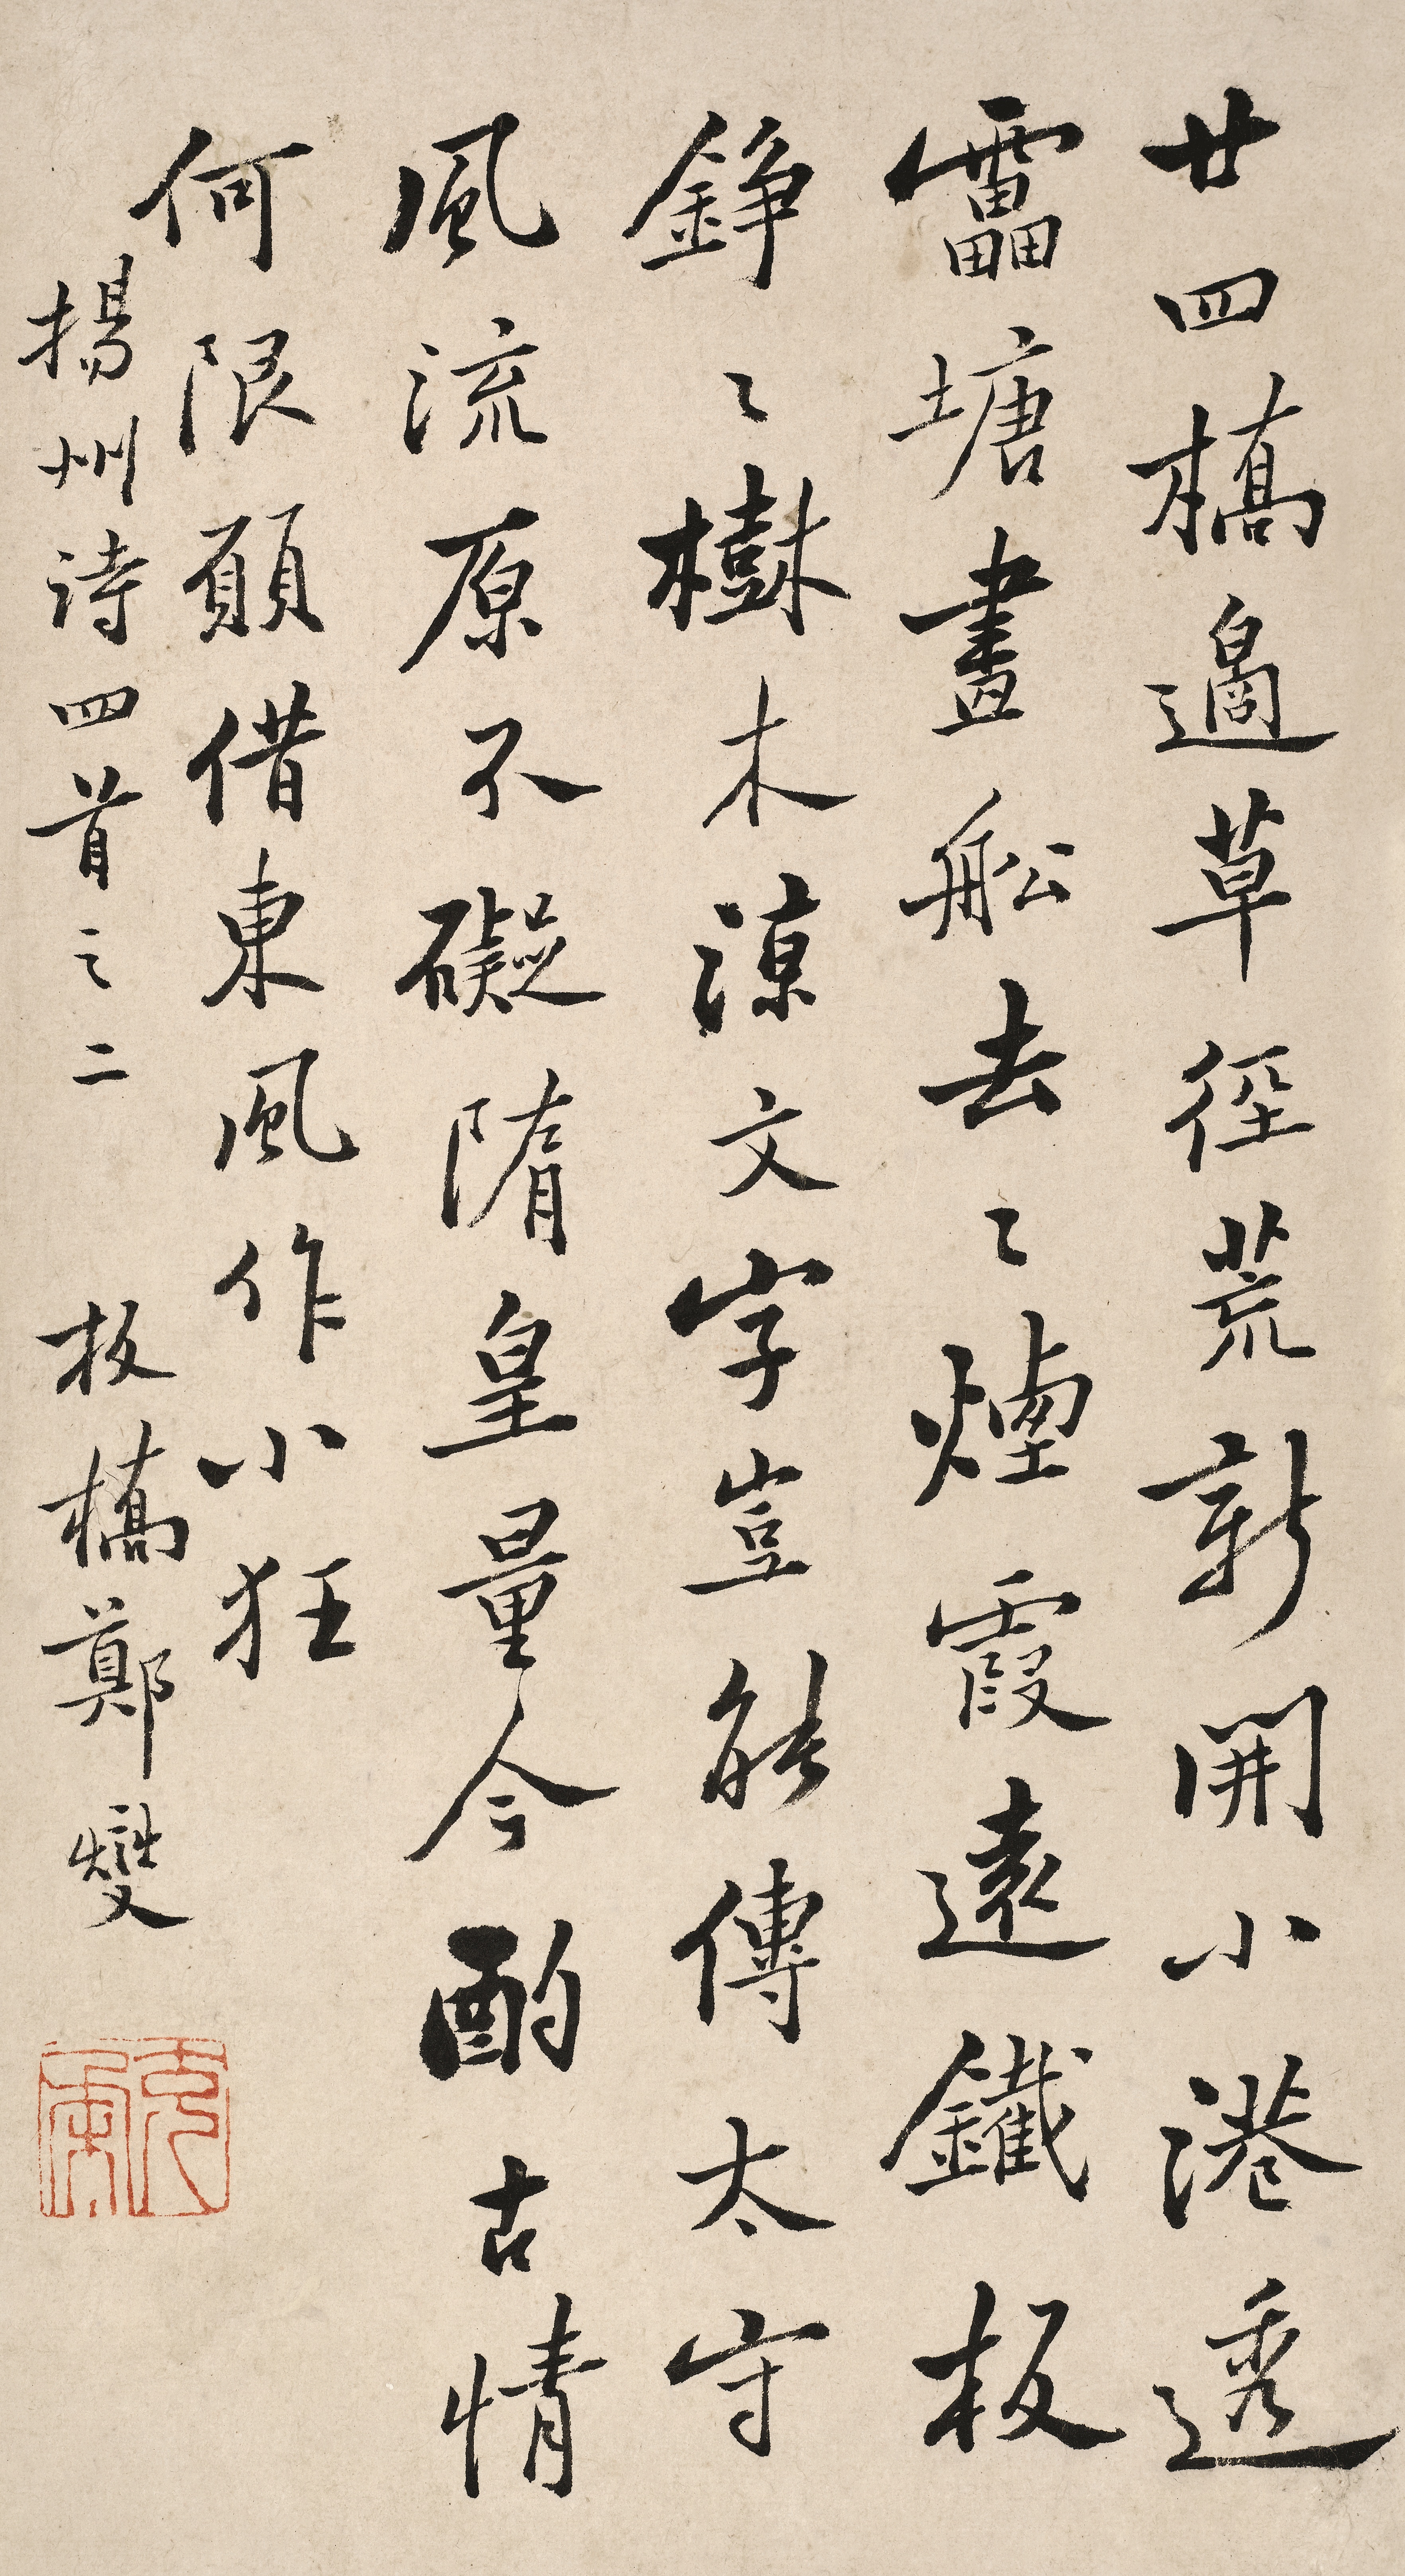 廿四橋邊草徑荒新開小港透
靁塘畫舩去〻煙霞遠鐵板
錚〻樹木涼文字豈能傳太守
風流原不礙隋皇量今酌古情
何限願借東風作小狂
揚州詩四首之二　板橋鄭燮
克柔